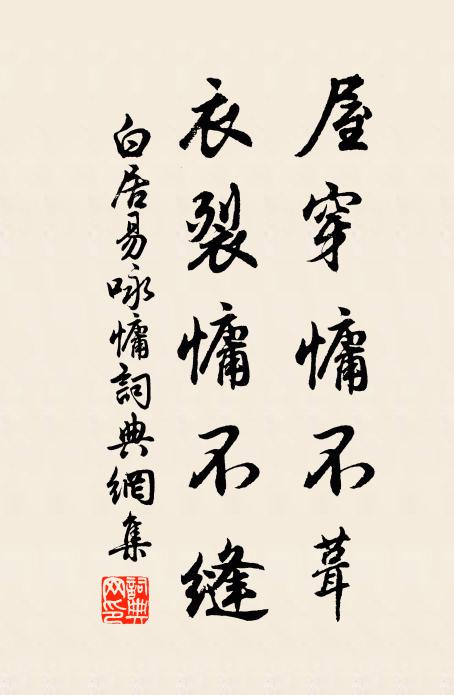 屋穿慵不葺
衣裂慵不縫
白居易咏慵詞典網集
詞典網印